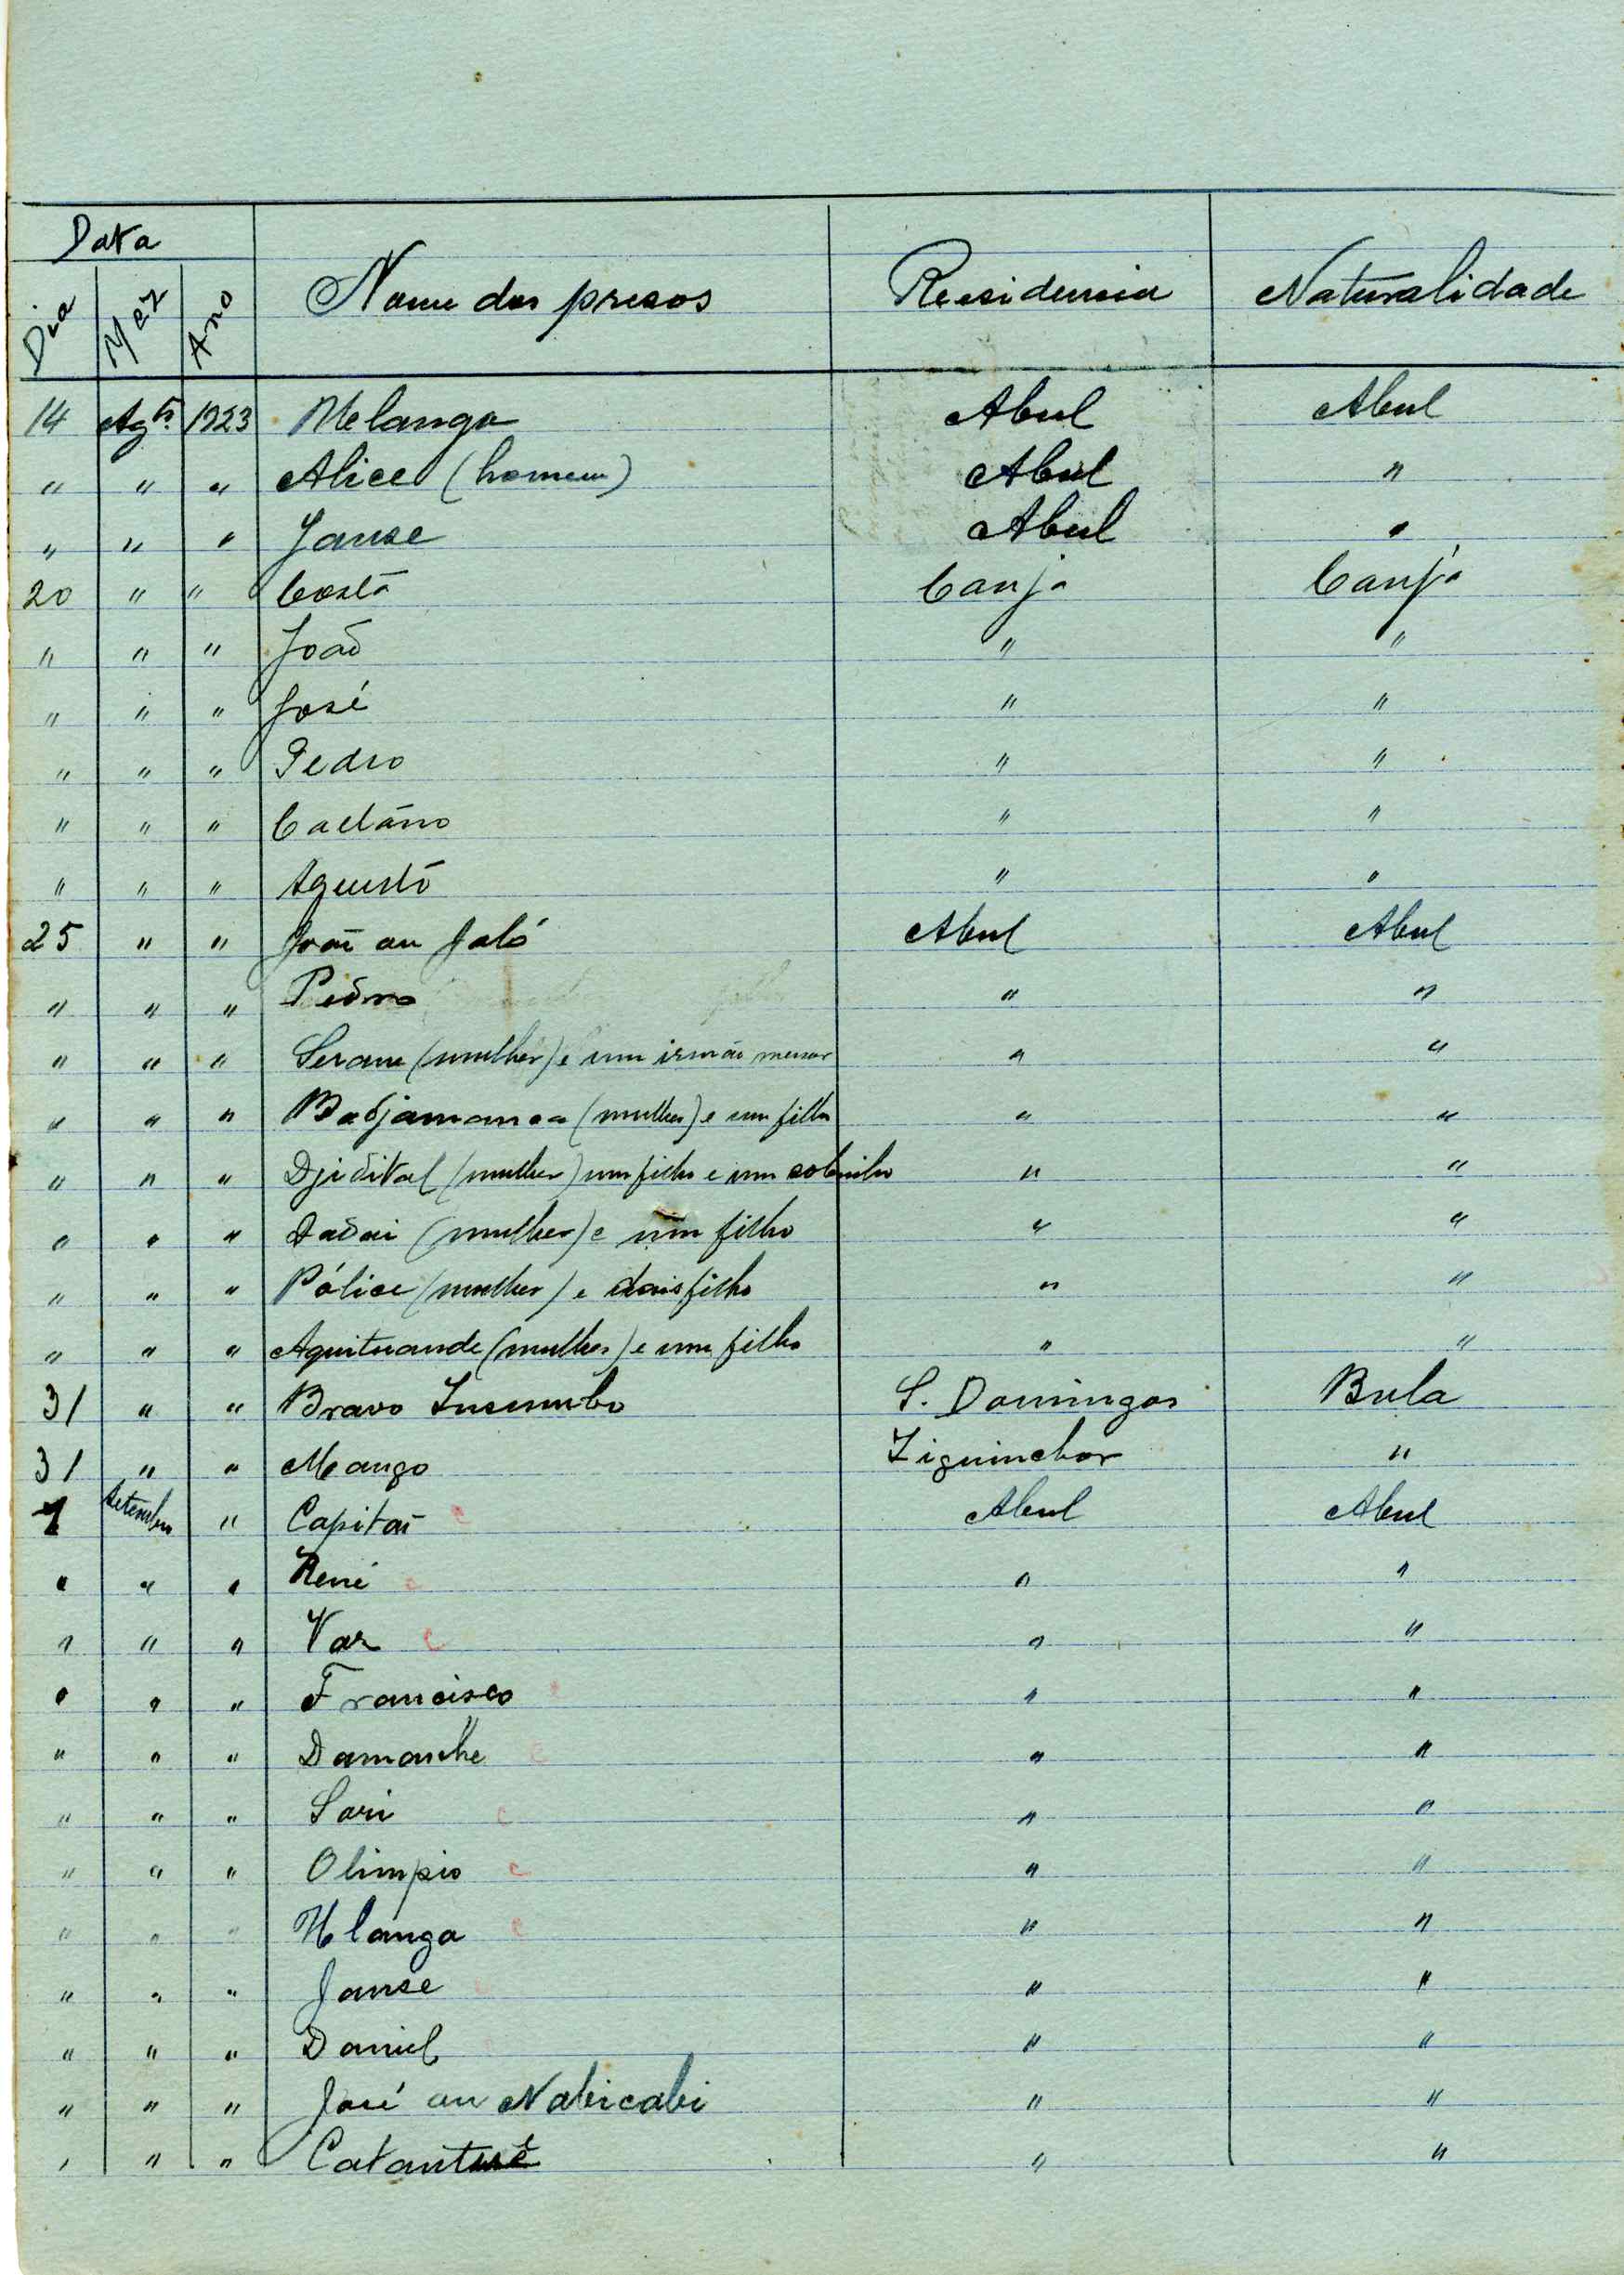 Data
Dia Mêz Ano Nome dos presos Residencia Naturalidade
14 Agto. 1923 Melanga Abul Abul
" " " Alice (homem) Abul "
" " " Janse Abul "
20 " " Costa Canja Canjá
" " " João " "
" " " José " "
" " " Pedro " "
" " " Caetano " "
" " " Agusto " "
25 " " João ou Jaló Abul Abul
" " " Pedro " "
" " " (mulher) e um irmão menor " "
" " " Badjamanca (mulher) e um filho " "
" " " Djidital (mulher) um filho e um sobrinho " "
" " " Dadai (mulher) e um filho " "
" " " Pólice (mulher) e dois filho " "
" " " Aquituande (mulher) e um filho " "
31 " " Bravo S. Domingos Bula
31 " " Mango Ziguinchor "
1 Setembro " Capitaõ c Abul Abul
" " " René c " "
" " " Vaz c " "
" " " Francisco " "
" " " Damanhe c " "
" " " Sari c " "
" " " Olimpio c " "
" " " Hlanga c " "
" " " Janse " "
" " " Daniel " "
" " " José ou Nabicabi " "
" " " " "